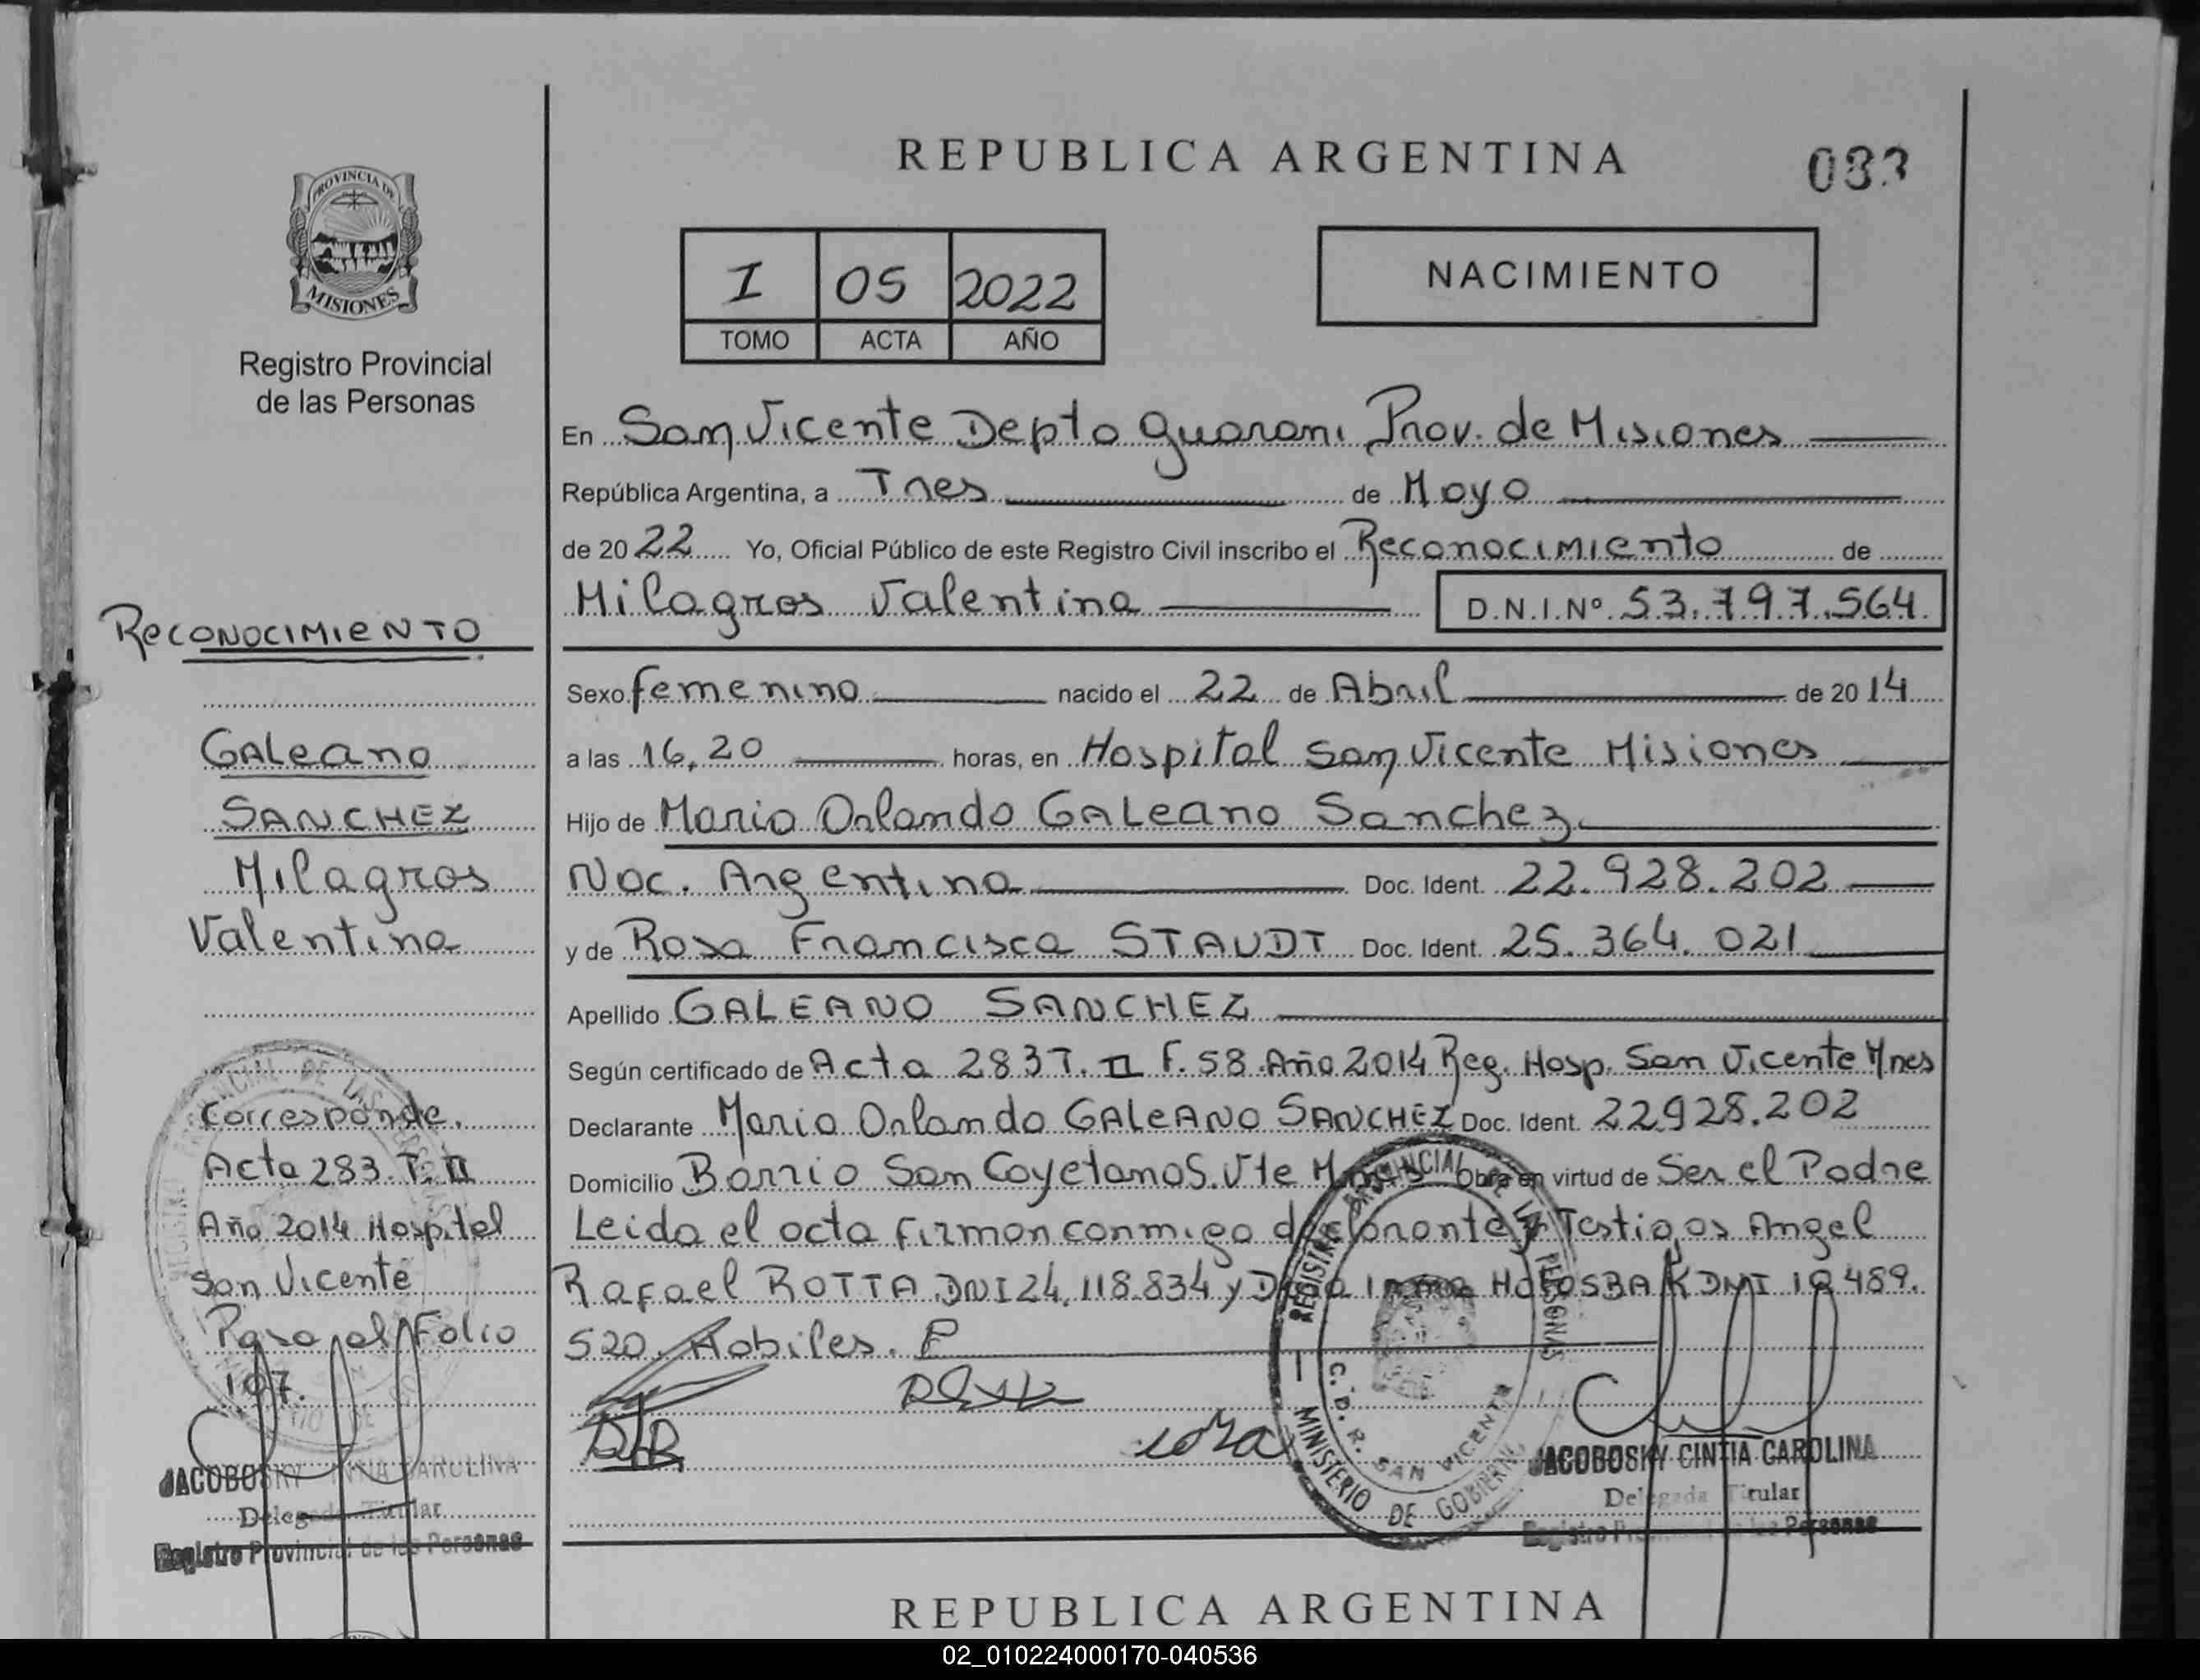 REPUBLICA ARGENTINA
083
PROVINCIA DE
MISIONES
Registro Provincial
de las Personas
I 05 2022
TOMO ACTA AÑO
NACIMIENTO
En San Vicente Depto Guarani Prov. de Misiones
República Argentina, a Tres de Mayo
de 2022 Yo, Oficial Público de este Registro Civil inscribo el Reconocimiento de
Milagros Valentina D.N.I.Nº 53.797.564
Sexo femenino nacido el 22 de Abril de 2014
a las 16,20 horas, en Hospital San Vicente Misiones
Hijo de Mario Orlando Galeano Sanchez
Nac. Argentina Doc. Ident. 22.928.202
y de Rosa Francisca STAUDT Doc. Ident. 25.364.021
Apellido GALEANO SANCHEZ
Según certificado de Acta 283 T. II F. 58 Año 2014 Reg. Hosp. San Vicente Mnes
Declarante Mario Orlando GALEANO SANCHEZ Doc. Ident. 22928.202
Domicilio Barrio San Cayetano S. Vte Mnes Obra en virtud de Ser el Padre
Leida el acta firman conmigo declarante y Testigos Angel
Rafael ROTTA DNI 24.118.834 y DNI 18.489.
520. Habiles.
RECONOCIMIENTO
Galeano
SANCHEZ
Milagros
Valentina
Corresponde
Acta 283. T. II
Año 2014 Hospital
San Vicente
Pasa al Folio
197.
JACOBOSKY CINTIA CAROLINA
Delegada Titular
Registro Provincial de las Personas
REGISTRO PROVINCIAL DE LAS PERSONAS
C. D. R. SAN VICENTE
MINISTERIO DE GOBIERNO
JACOBOSKY CINTIA CAROLINA
Delegada Titular
Registro Provincial de las Personas
REPUBLICA ARGENTINA
02_010224000170-040536